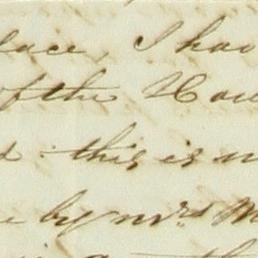 lace, I ha
of the Hou
d. this is n
e by mrs M